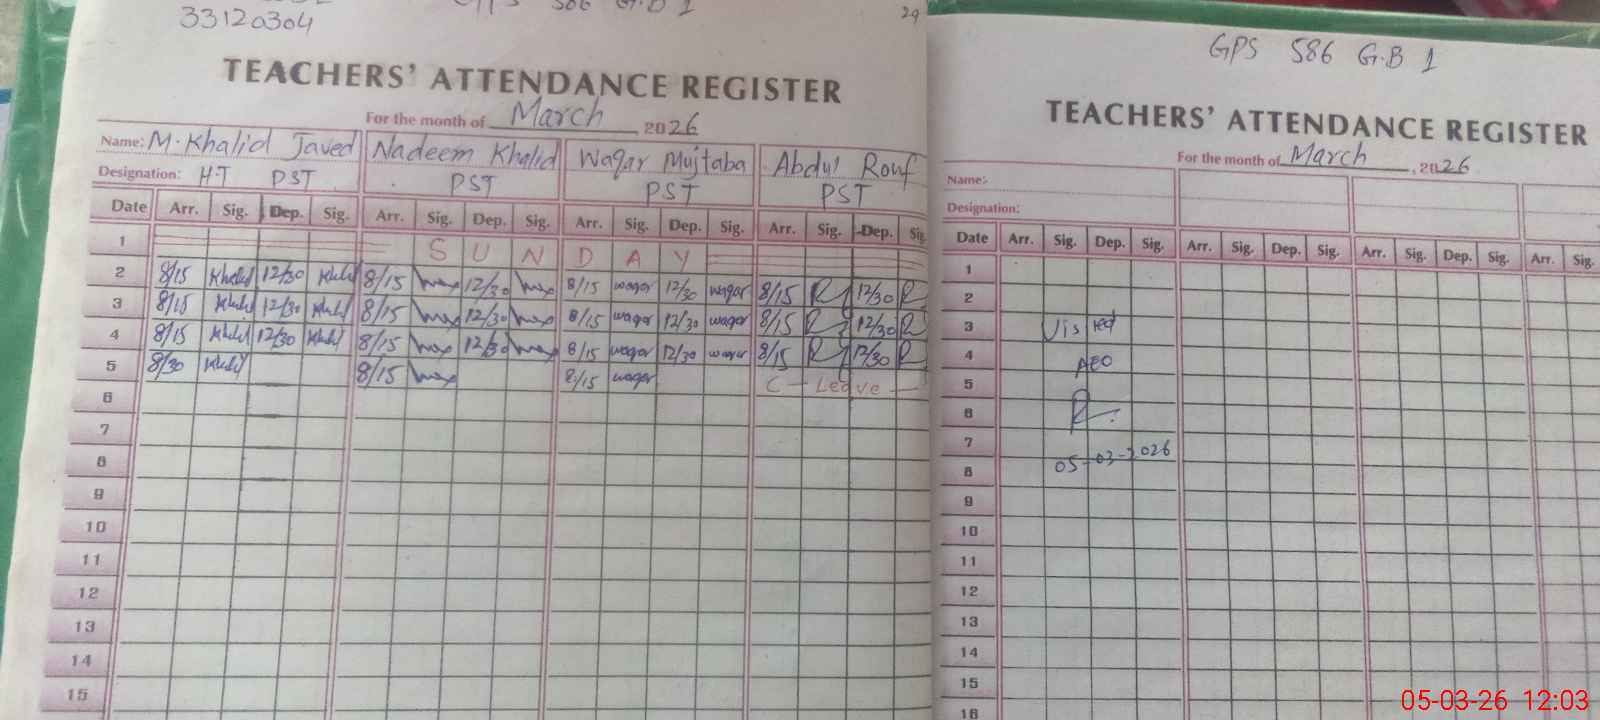 33120304
GPS 586 G.B 1
29
TEACHERS' ATTENDANCE REGISTER
For the month of March, 2026
Name: M. Khalid Javed Nadeem Khalid Waqar Mujtaba Abdul Rouf
Designation: H.T PST PST PST PST
Date Arr. Sig. Dep. Sig. Arr. Sig. Dep. Sig. Arr. Sig. Dep. Sig. Arr. Sig. Dep. Sig
1 S U N D A Y
2 8/15 Khalid 12/30 Khalid 8/15 12/30 8/15 waqar 12/30 waqar 8/15 12/30
3 8/15 Khalid 12/30 Khalid 8/15 12/30 8/15 waqar 12/30 waqar 8/15 12/30
4 8/15 Khalid 12/30 Khalid 8/15 12/30 8/15 waqar 12/30 waqar 8/15 12/30
5 8/30 Khalid 8/15 8/15 waqar C - Leave -
6
7
8
9
10
11
12
13
14
15
GPS 586 G.B 1
TEACHERS' ATTENDANCE REGISTER
For the month of March, 2026
Name:
Designation:
Date Arr. Sig. Dep. Sig. Arr. Sig. Dep. Sig. Arr. Sig. Dep. Sig. Arr. Sig.
1
2
3 Visited
4 AEO
5
6
7
8 05-03-2026
9
10
11
12
13
14
15
16
05-03-26 12:03